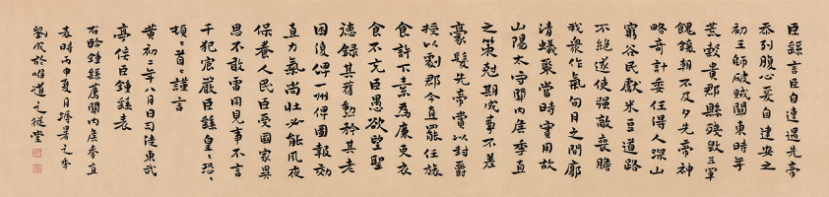 臣繇言臣自遭遇先帝
忝列腹心爰自建安之
初王師破賊關東時年
荒穀貴郡縣殘毀三軍
餽饟朝不及夕先帝神
略奇計委任得人深山
窮谷民獻米豆道路
不絕遂使強敵喪膽
我衆作氣旬月之間廓
清蟻聚當時實用故
山陽太守關内侯季直
之策剋期成事不差
豪髮先帝賞以封爵
授以劇郡今直罷任旅
食許下素為廉吏衣
食不充臣愚欲望聖
德錄其舊勳矜其老
困復俾一州俾圖報効
直力氣尚壯必能夙夜
保養人民臣受國家異
恩不敢雷同見事不言
干犯宸嚴臣繇皇〻恐〻
頓〻首〻謹言
黄初二年八月日司徒東武
亭侯臣鍾繇表
右臨鍾繇薦關内侯季直
表時丙申夏月
於唯道之從堂